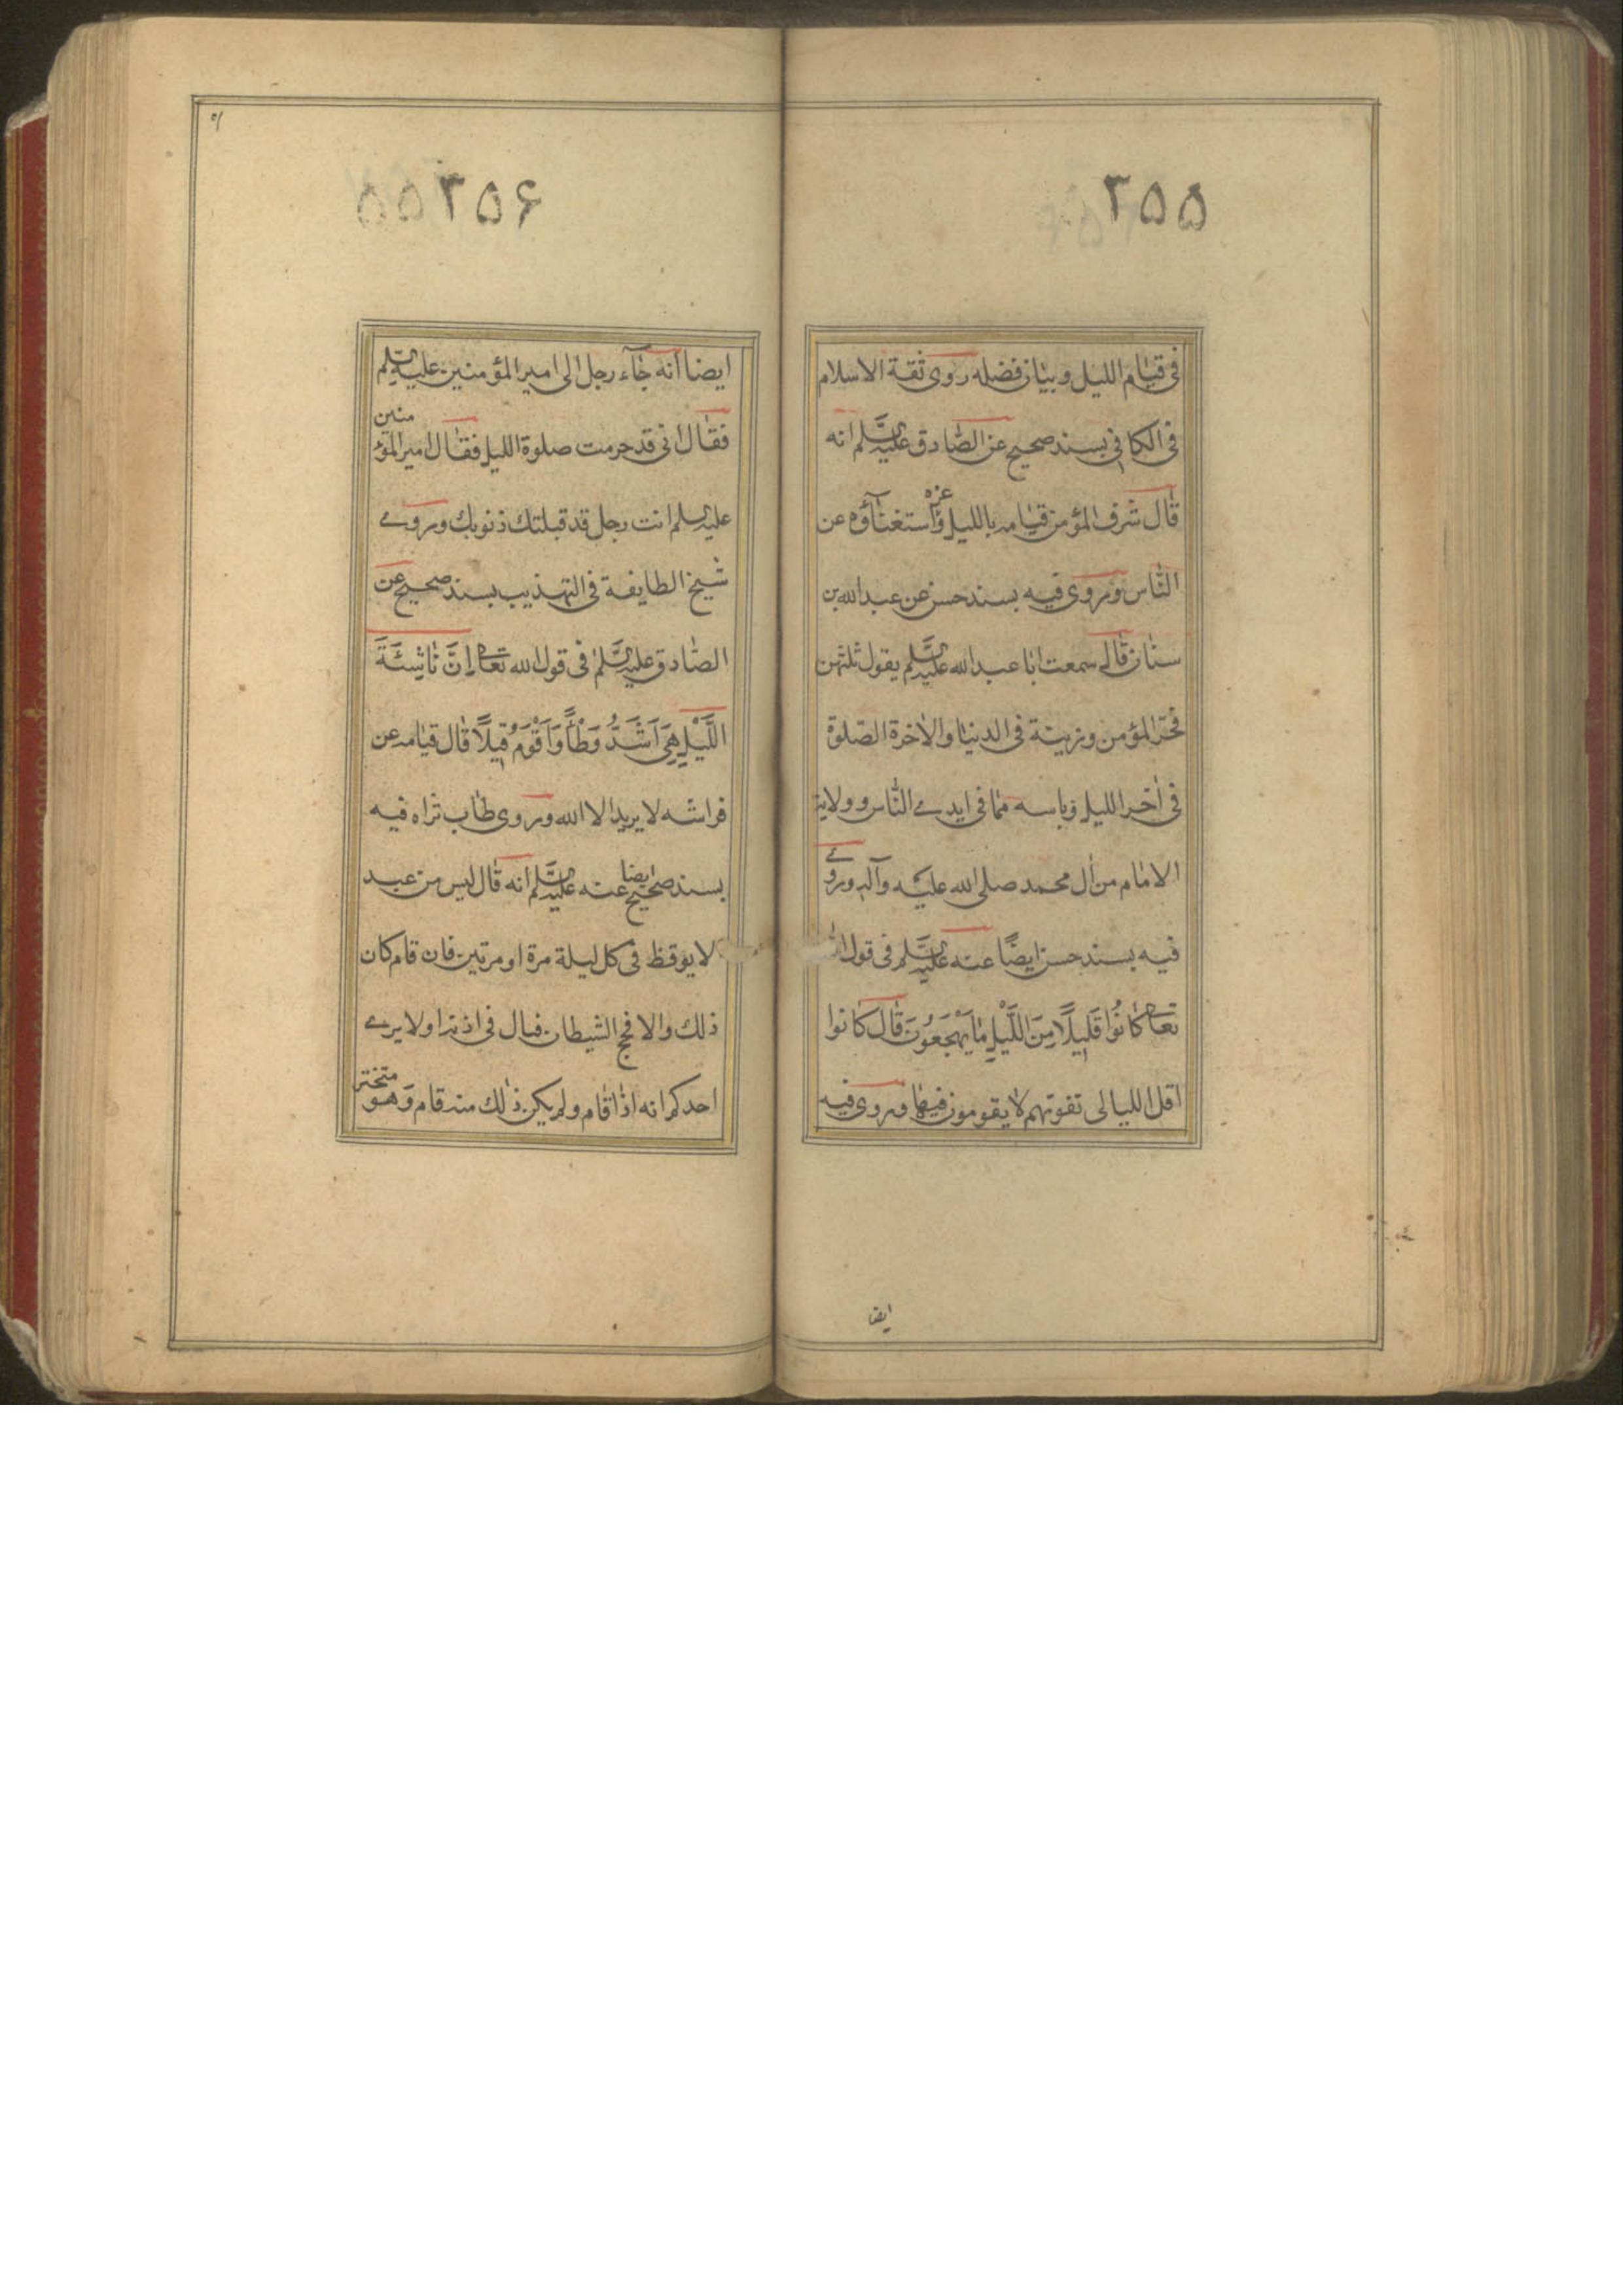 ٢٥٥
في قيام الليل وبيان فضله روى ثقة الاسلام
في الكافي بسند صحيح عن الصادق عليه السلم انه
قال شرف المؤمن قيامه بالليل وعزه استغناؤه عن
الناس وروى فيه بسند حسن عن عبد الله بن
سنان قال سمعت ابا عبد الله عليه السلم يقول ثلثهن
فخر المؤمن وزينة في الدنيا والاخرة الصلوة
في اخر الليل وياسه مما في ايدي الناس وولاية
الامام من ال محمد صلى الله عليه وآله وروى
فيه بسند حسن ايضًا عنه عليه السلم في قول الله
تعالى كَانُوا قَلِيلًا مِنَ اللَّيْلِ مَا يَهْجَعُونَ قال كانوا
اقل الليالي تفوتهم لا يقومون فيها وروى فيه
ايضا
٢٥۶
ايضا انه جآء رجل الى امير المؤمنين عليه السلم
فقال اني قد حرمت صلوة الليل فقال امير المؤمنين
عليه السلم انت رجل قد قبلتك ذنوبك وروى
شيخ الطايفة في التهذيب بسند صحيح عن
الصادق عليه السلم في قول الله تعالى اِنَّ نَاشِئَةَ
اللَّيْلِ هِيَ اَشَدُّ وَطْأً وَاَقْوَمُ قِيلًا قال قيامه عن
فراشه لا يريد الا الله وروى طاب ثراه فيه
بسند صحيح ايضا عنه عليه السلم انه قال ليس من عبد
لا يوقظ في كل ليلة مرة او مرتين فان قام كان
ذلك والا فحج الشيطان فبال في اذنه اولا يرى
احدكم انه اذا قام ولم يكن ذلك منه قام وهو متختر